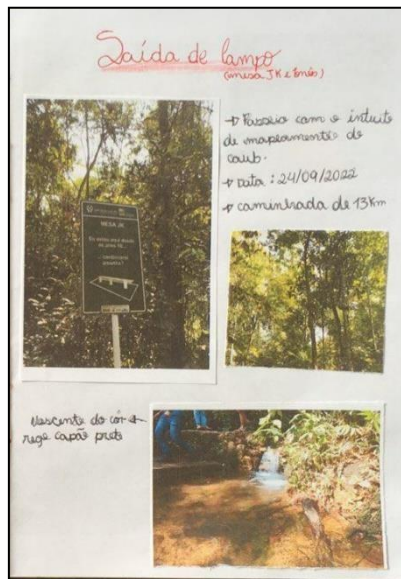 Saída de Campo
(mesa JK e Emês)
→ Passeio com o intuito
de mapeamento do
caub.
→ Data: 24/09/2022
→ caminhada de 13Km
MESA JK
Nascente do cór-
rego capão preto